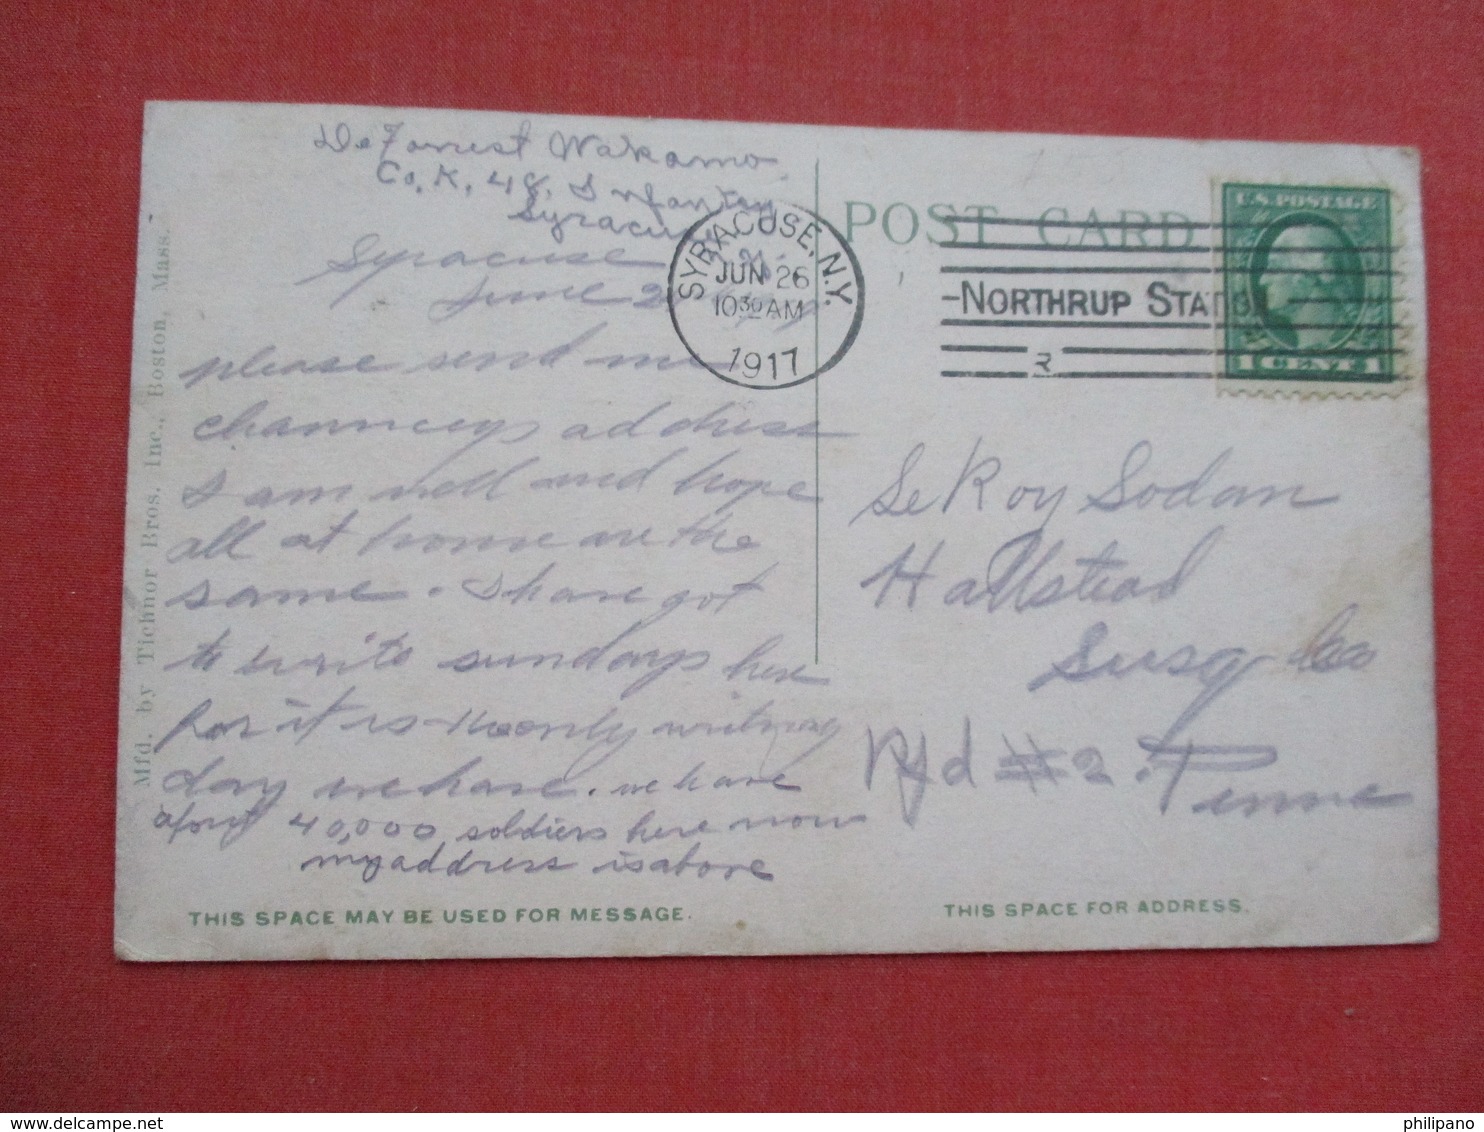 DeForrest Wakamo
Co, K, 48, Infantry
Syracuse
Syracuse
June
please send me
chaunceys address
I am well and hope
all at home are the
same. I have got
to write sundays here
for it is the only writing
day we have. we have
about 40,000 soldiers here now
my address is above
THIS SPACE MAY BE USED FOR MESSAGE.
Mfd. by Tichnor Bros. Inc., Boston, Mass.
SYRACUSE, N.Y.
JUN 26
10 30 AM
1917
POST CARD
NORTHRUP STATION
3
U.S. POSTAGE
1 CENT 1
LeRoy Sodan
Hallstead
Susq Co
Rfd #2. Penna
THIS SPACE FOR ADDRESS.
philipano
www.delcampe.net